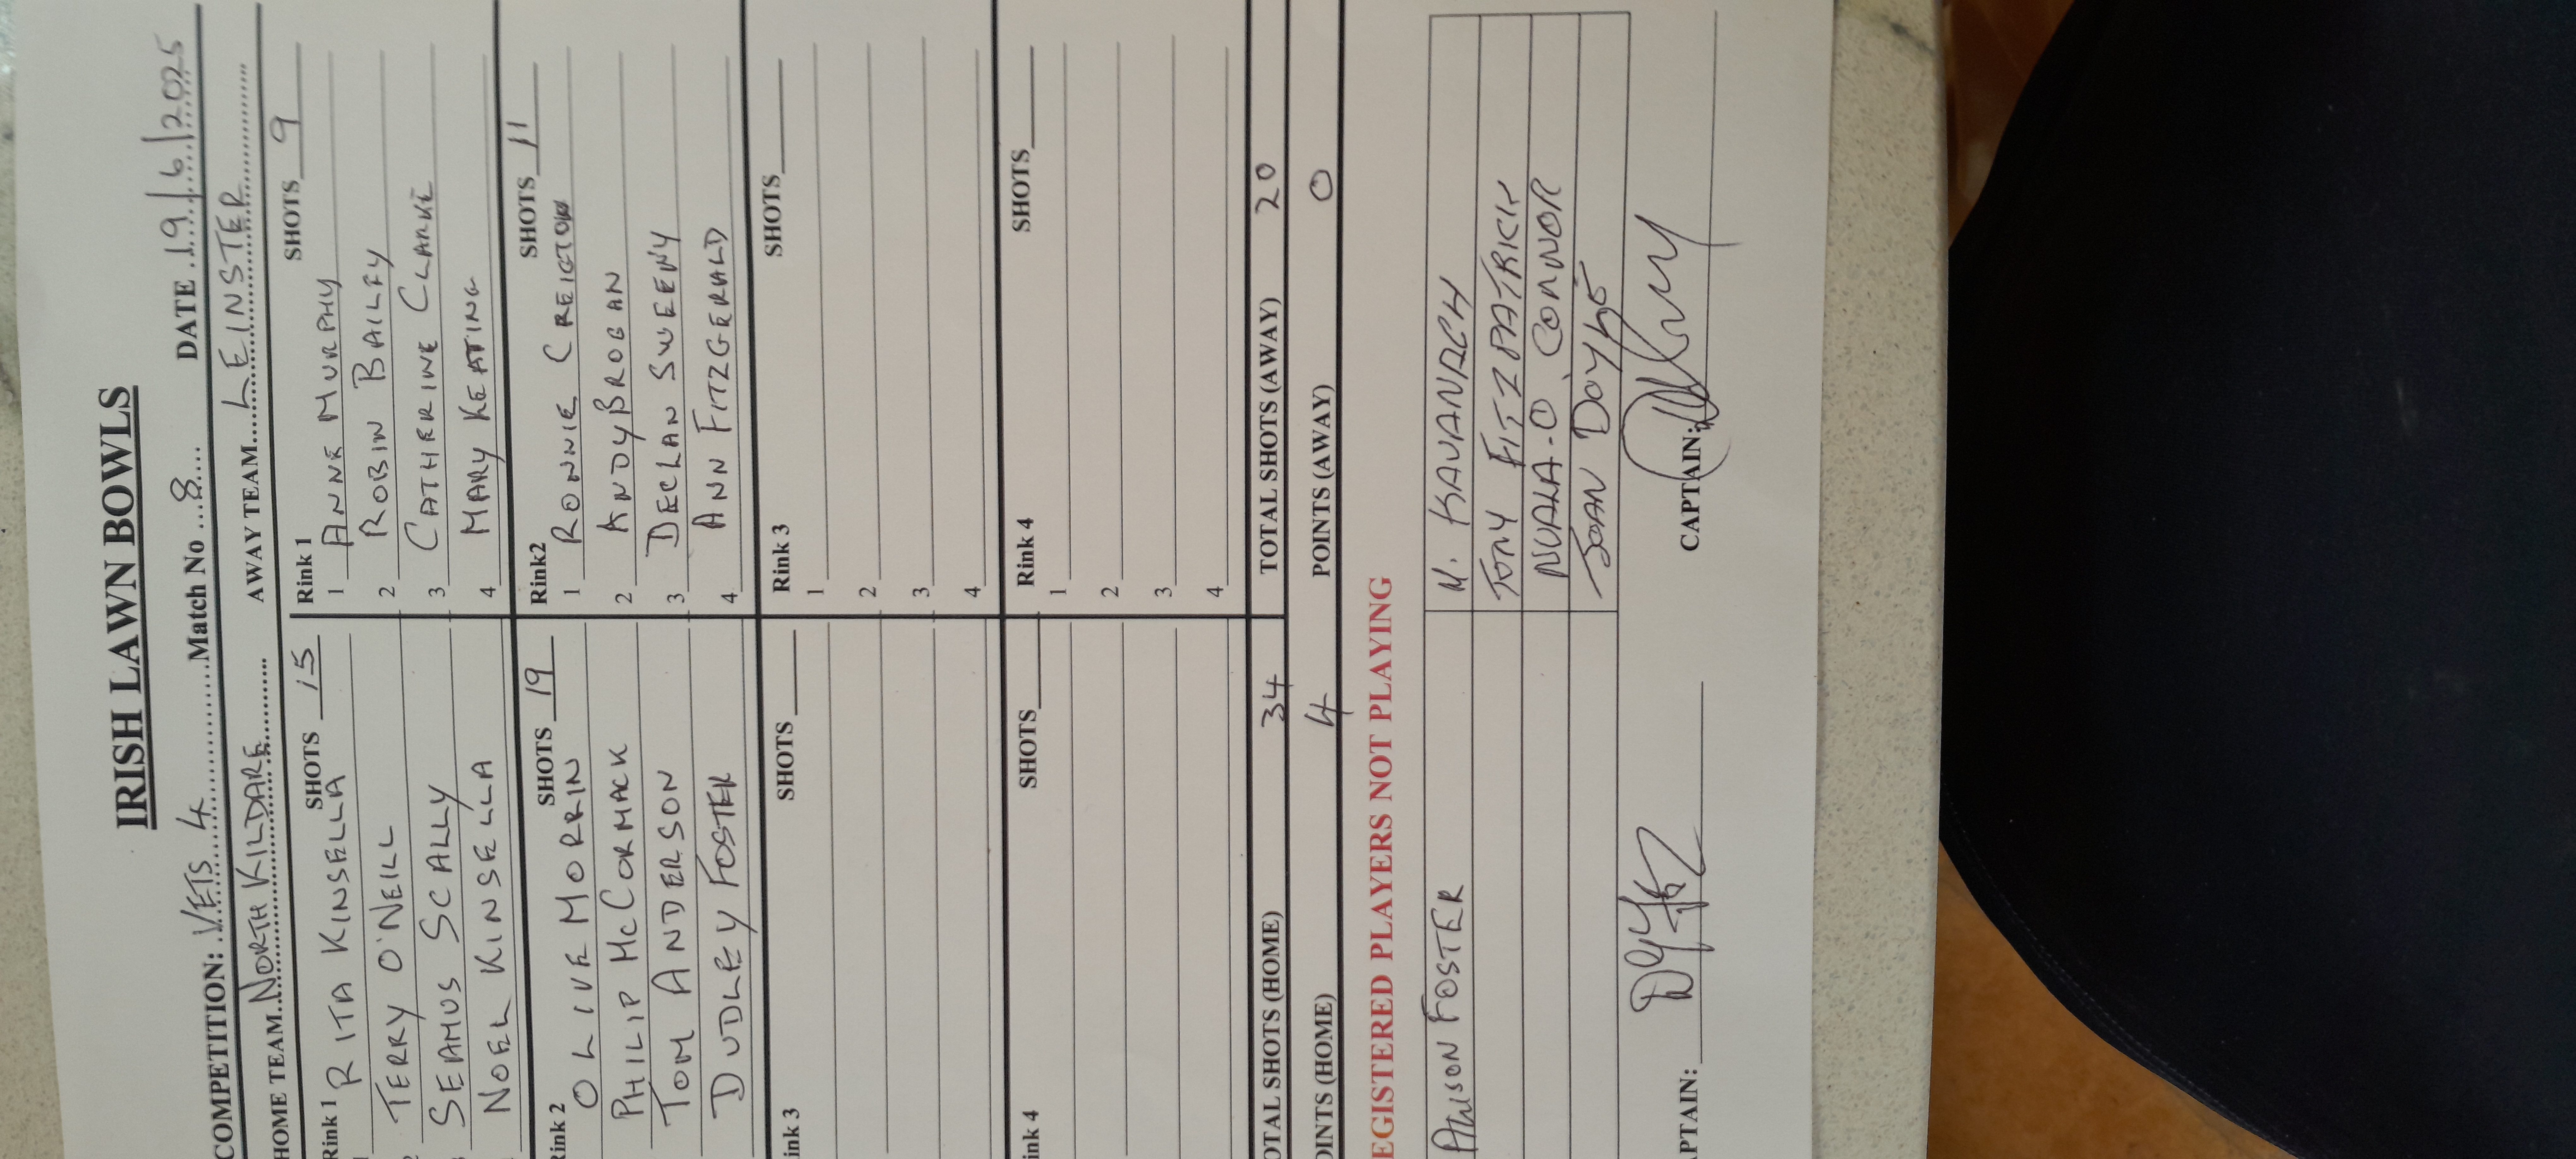 IRISH LAWN BOWLS
COMPETITION: VETS 4 Match No 8 DATE 19/6/2025
HOME TEAM NORTH KILDARE AWAY TEAM LEINSTER
Rink 1 SHOTS 15 Rink 1 SHOTS 9
RITA KINSELLA 1 ANNE MURPHY
TERRY O'NEILL 2 ROBIN BAILEY
SEAMUS SCALLY 3 CATHERINE CLARKE
NOEL KINSELLA 4 MARY KEATING
Rink 2 SHOTS 19 Rink2 SHOTS 11
OLIVE MORRIN 1 RONNIE CREIGTON
PHILIP McCORMACK 2 ANDY BROGAN
TOM ANDERSON 3 DECLAN SWEENY
DUDLEY FOSTER 4 ANN FITZGERALD
ink 3 SHOTS Rink 3 SHOTS
1
2
3
4
ink 4 SHOTS Rink 4 SHOTS
1
2
3
4
OTAL SHOTS (HOME) 34 TOTAL SHOTS (AWAY) 20
OINTS (HOME) 4 POINTS (AWAY) 0
EGISTERED PLAYERS NOT PLAYING
ALISON FOSTER M. KAVANAGH
TONY FITZPATRICK
NUALA O'CONNOR
JOAN DOYLE
APTAIN: CAPTAIN: